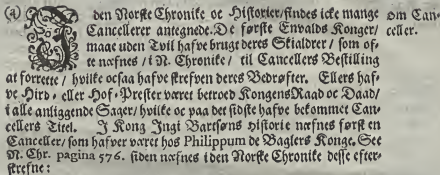 (a) I den Norske Chronike oc Historier/ findes icke mange
Cancellerer antegnede. De første Envalds Konger/
maae uden Tvil hafve bruget deres Skialdrer / som of-
te næfnes / i N. Chronike / til Cancellers Bestilling
at forrette / hvilke ocsaa hafve skrefven deres Bedrøfter. Ellers haf-
ve Hird, eller Hof, Prester været betroed Kongens Raad oc Daad/
i alle anliggende Sager/ hvilke oc paa det sidste hafve bekommet Can-
cellers Titel. I Kong Ingi Bartsøns Historie næfnes først en
Canceller/ som hafver været hos Philippum de Baglers Konge. See
N. Chr. pagina 576. siden næfnes i den Norske Chronike desse efter-
skrefne:
Om Can-
celler.